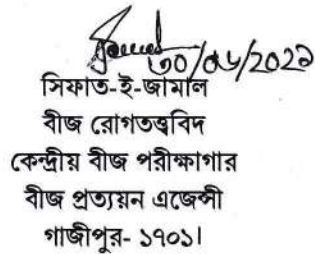 ৩০/০৬/2021
সিফাত-ই-জামাল
বীজ রোগতত্ত্ববিদ
কেন্দ্রীয় বীজ পরীক্ষাগার
বীজ প্রত্যয়ন এজেন্সী
গাজীপুর- ১৭০১।